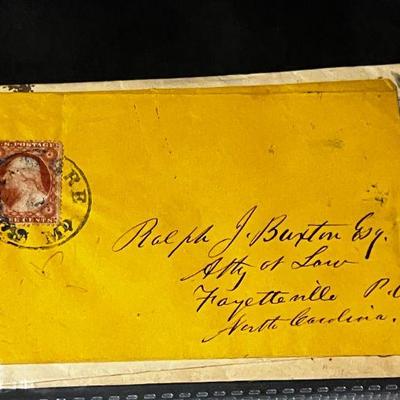 U.S. POSTAGE
THREE CENTS
Ralph J. Buxton Esq.
Atty at Law
Fayetteville P.O
North Carolina.